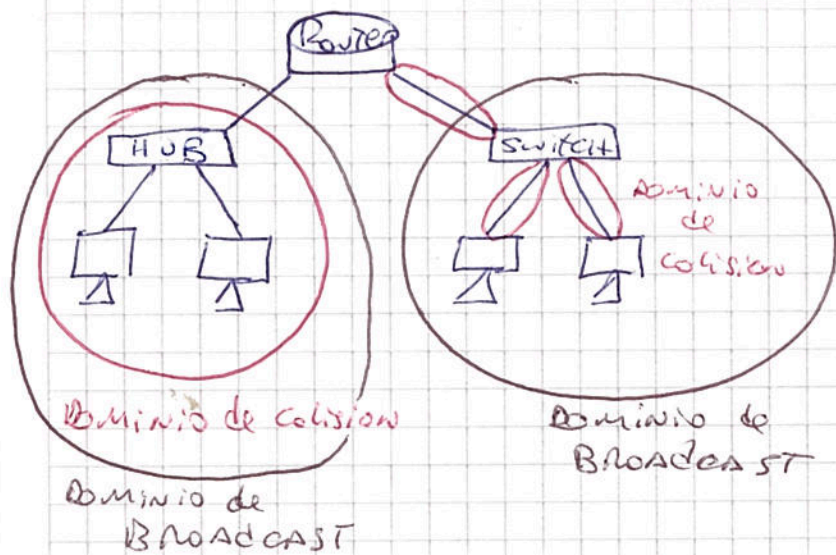 Router
HUB
SWITCH
DOMINIO
de
COLISION
DOMINIO de COLISION
DOMINIO de
BROADCAST
DOMINIO de
BROADCAST